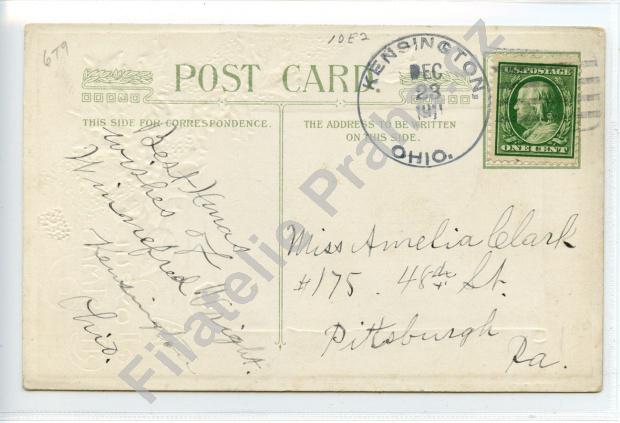 6T9
10E2
POST CARD
THIS SIDE FOR CORRESPONDENCE.
THE ADDRESS TO BE WRITTEN
ON THIS SIDE.
KENSINGTON,
DEC
23
1911
OHIO.
U.S. POSTAGE
ONE CENT
Best Xmas
wishes of
Winnefred Wright.
Kensington
Ohio.
Miss Amelia Clark
#175. 48th St.
Pittsburgh
Pa.
Filatelie Praha.cz